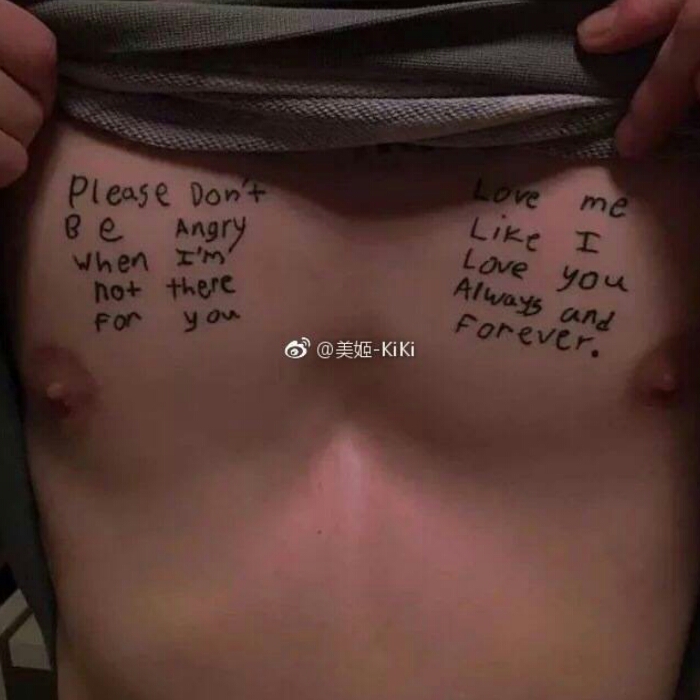 Please Don't
Be Angry
when I'm
not there
For you
Love me
Like I
Love you
Always and
Forever.
@美姬-KiKi